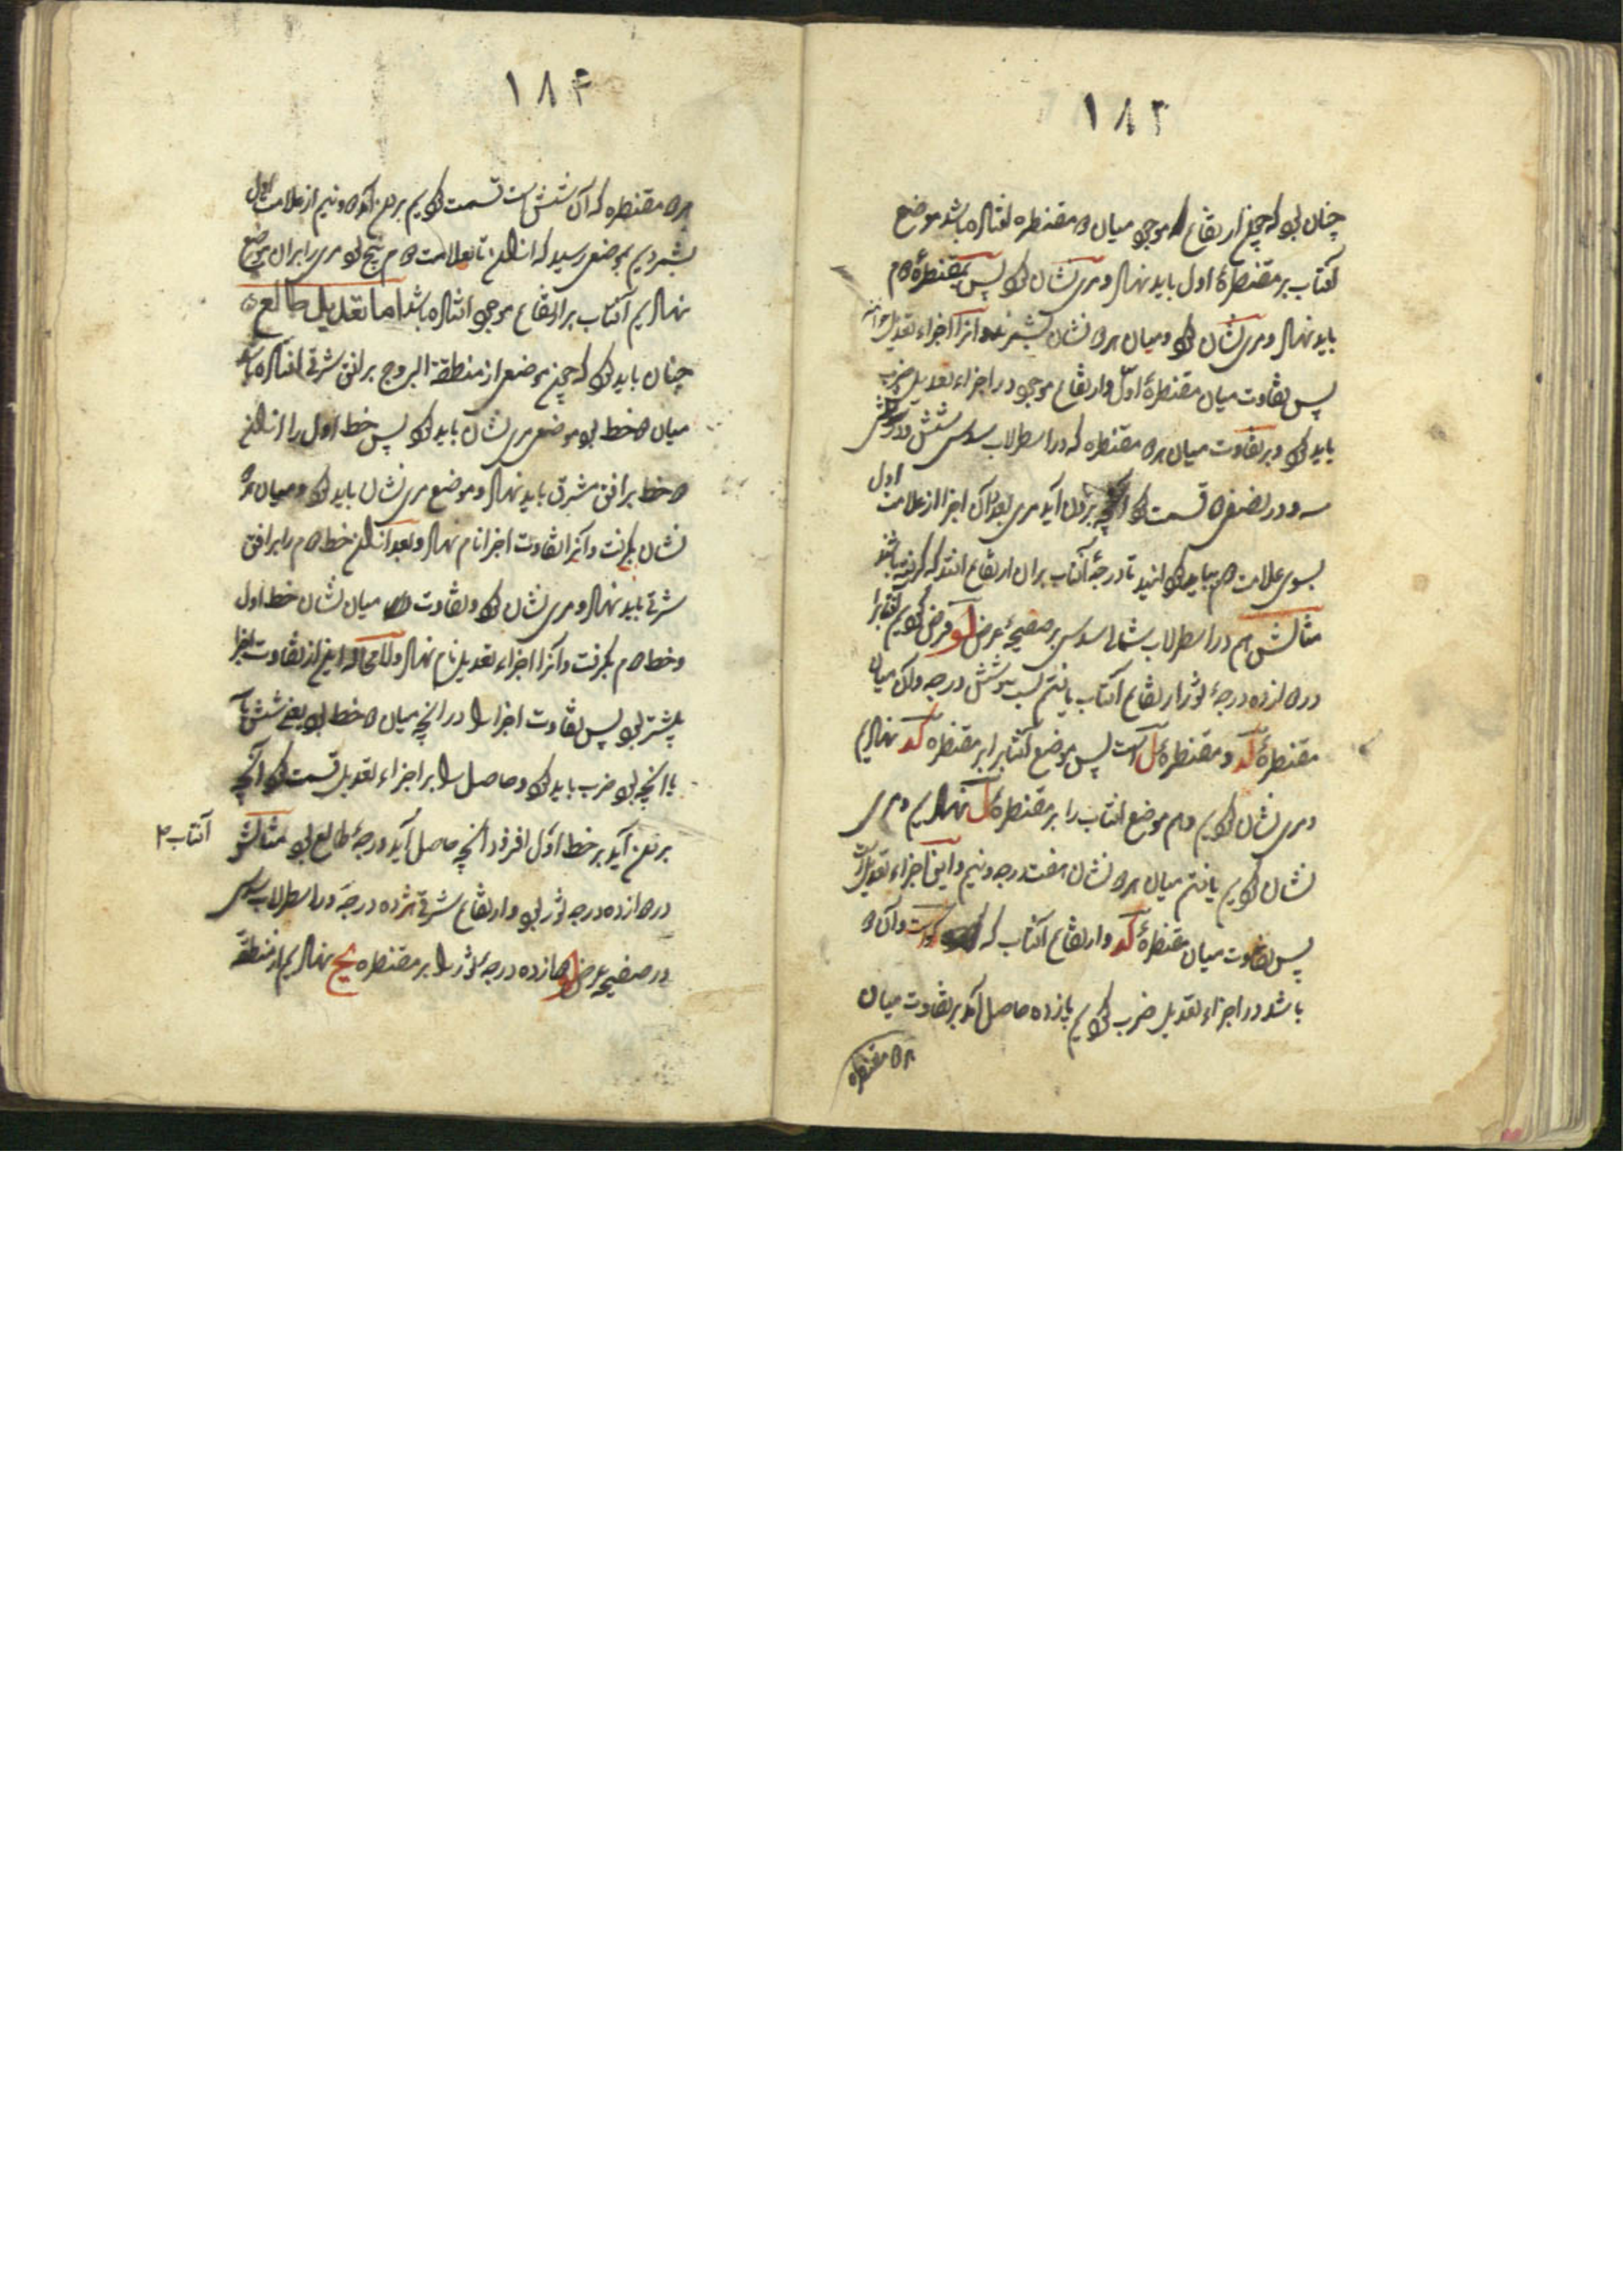 ۱۸۳
چنان بود که چون ارتفاع موجود میان دو مقنطره افتاده باشد موضع
آفتاب بر مقنطرهٔ اول باید نهاد و مری نشان کرد پس بمقنطرهٔ دوم
باید نهاد و مری نشان کرد و میان هر دو نشان بشمرند و آنرا اجزاء تعدیل خوانند
پس تفاوت میان مقنطرهٔ اول و ارتفاع موجود در اجزاء تعدیل ضرب
باید کرد و بر تفاوت میان هر دو مقنطره که در اسطرلاب سدسی شش و در ثلثی
سه و در نصفی دو قسمت کرد آنچه برون آید مری بقدر آن اجزا از علامت اول
بسوی علامت دوم بباید گردانید تا درجهٔ آفتاب بران ارتفاع افتد که گرفته باشند
مثالش هم در اسطرلاب شمالی سدسی بر صفیحهٔ عرض لو فرض کردیم آفتاب را
در دوازده درجهٔ ثور ارتفاع آفتاب یافتیم بیست و شش درجه و آن میان
مقنطرهٔ کد و مقنطرهٔ ل است پس موضع آفتاب را بر مقنطره کد نهادیم
و مری نشان کردیم و هم موضع آفتاب را بر مقنطرهٔ ل نهادیم و مری
نشان کردیم یافتیم میان هر دو نشان هفت درجه و نیم و این اجزاء تعدیل است
پس تفاوت میان مقنطرهٔ کد و ارتفاع آفتاب که کو است و آن دو
باشد در اجزاء تعدیل ضرب کردیم پانزده حاصل آمد بر تفاوت میان
هر دو مقنطره
۱۸۴
هر دو مقنطره که آن شش است قسمت کردیم برون آمد دو و نیم از علامت اول
بشمردیم بموضعی رسید که از آنجا تا بعلامت دوم پنج بود مری را بران موضع
نهادیم آفتاب بر ارتفاع موجود افتاده باشد اما تعدیل طالع
چنان باید کرد که چون موضعی از منطقة البروج بر افق شرقی افتاده باشد
میان دو خط بود موضع مری نشان باید کرد پس خط اول را از آن
دو خط بر افق مشرق باید نهاد و موضع مری نشان باید کرد و میان هر دو
نشان بگرفت و آنرا تفاوت اجزا نام نهاد و بعد از آن خط دوم را بر افق
شرقی باید نهاد و مری نشان کرد و تفاوت میان نشان خط اول
و خط دوم بگرفت و آنرا اجزاء تعدیل نام نهاد و لا محاله این از تفاوت اجزا
بیشتر بود پس تفاوت اجزا را در آنچه میان دو خط بود یعنی شش یا
یا آنچه بود ضرب باید کرد و حاصل را بر اجزاء تعدیل قسمت کرد آنچه
برون آید بر خط اول افزود آنچه حاصل آید درجهٔ طالع بود مثالش
آفتاب
در دوازده درجه ثور بود و ارتفاع شرقی هژده درجه در اسطرلاب سدسی
در صفیحهٔ عرض لو دوازده درجهٔ ثور را بر مقنطره یح نهادیم از منطقة